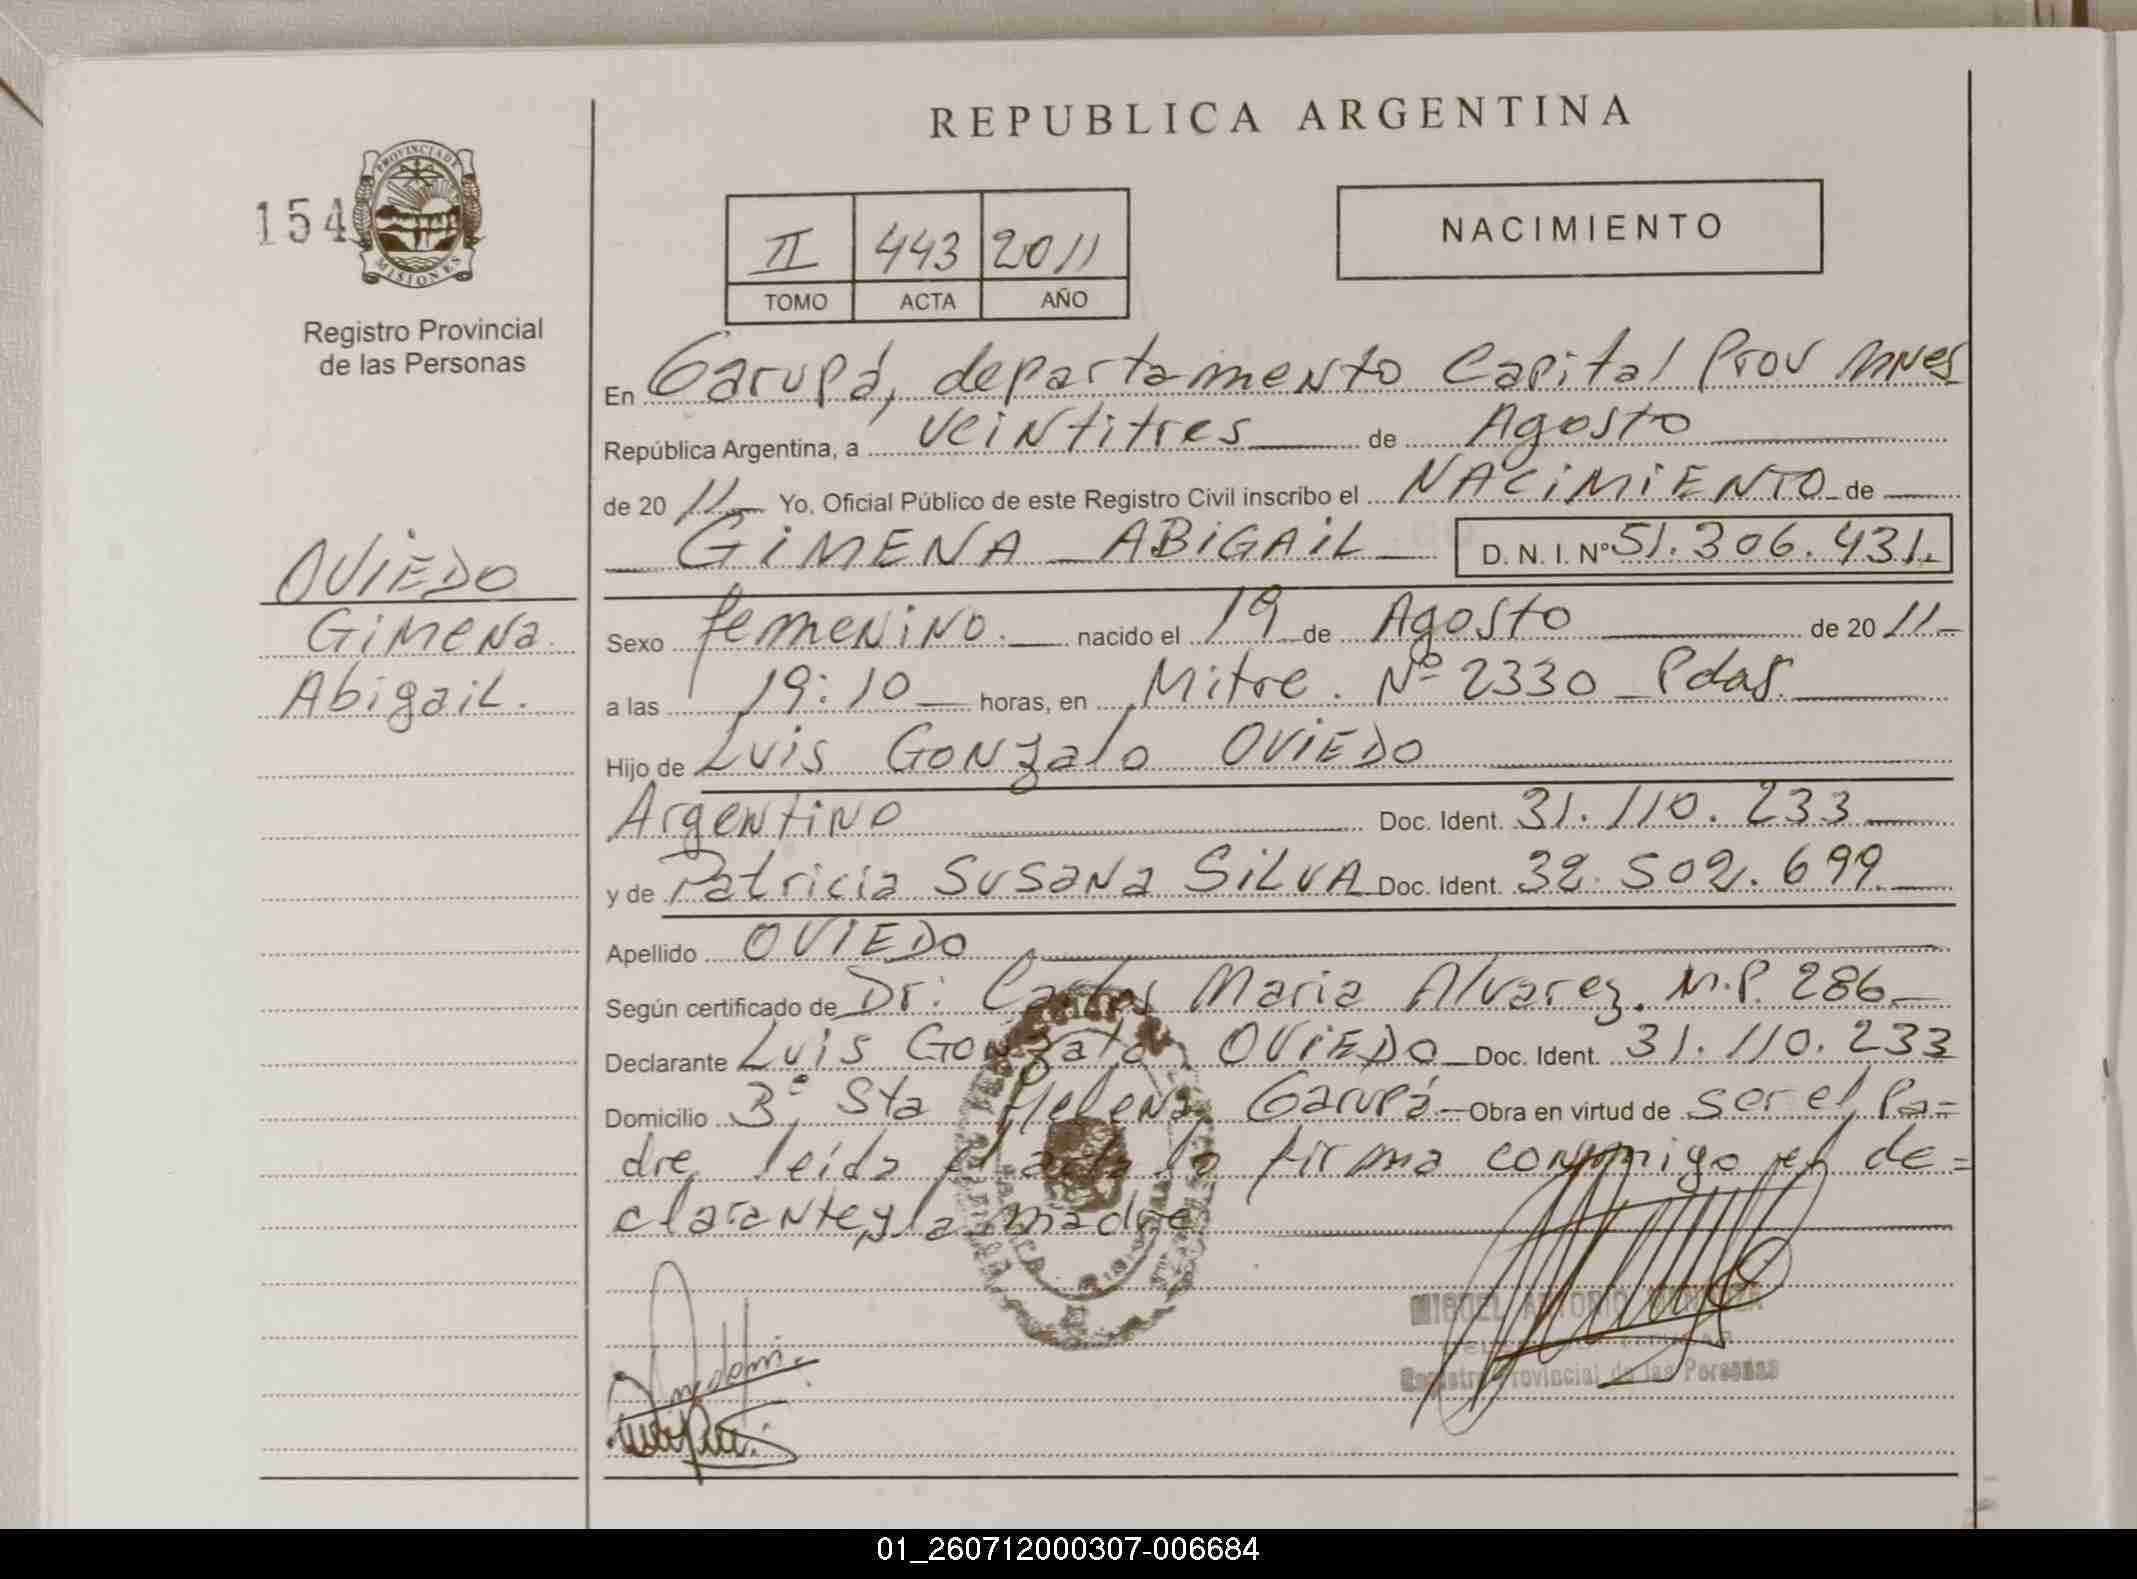 REPUBLICA ARGENTINA
154
PROVINCIA DE
MISIONES
Registro Provincial
de las Personas
NACIMIENTO
II 443 2011
TOMO ACTA AÑO
En Garupá, departamento Capital Prov Mnes
República Argentina, a veintitres de Agosto
de 20 11 Yo, Oficial Público de este Registro Civil inscribo el NACIMIENTO de
GIMENA ABIGAIL D. N. I. Nº 51.306.431.
OVIEDO
Gimena
Abigail.
Sexo femenino. nacido el 19 de Agosto de 20 11
a las 19:10 horas, en Mitre. Nº 2330 Pdas.
Hijo de Luis Gonzalo OVIEDO
Argentino Doc. Ident. 31.110.233
y de Patricia Susana SILVA Doc. Ident. 32.502.699
Apellido OVIEDO
Según certificado de Dr: Carlos Maria Alvarez. M.P. 286
Declarante Luis Gonzalo OVIEDO Doc. Ident. 31.110.233
Domicilio Bº Sta Helena Garupá Obra en virtud de ser el Pa=
dre, leída el acta la firma conmigo el de=
clarante, y la madre
MIGUEL ANTONIO
Registro Provincial de las Personas
01_260712000307-006684